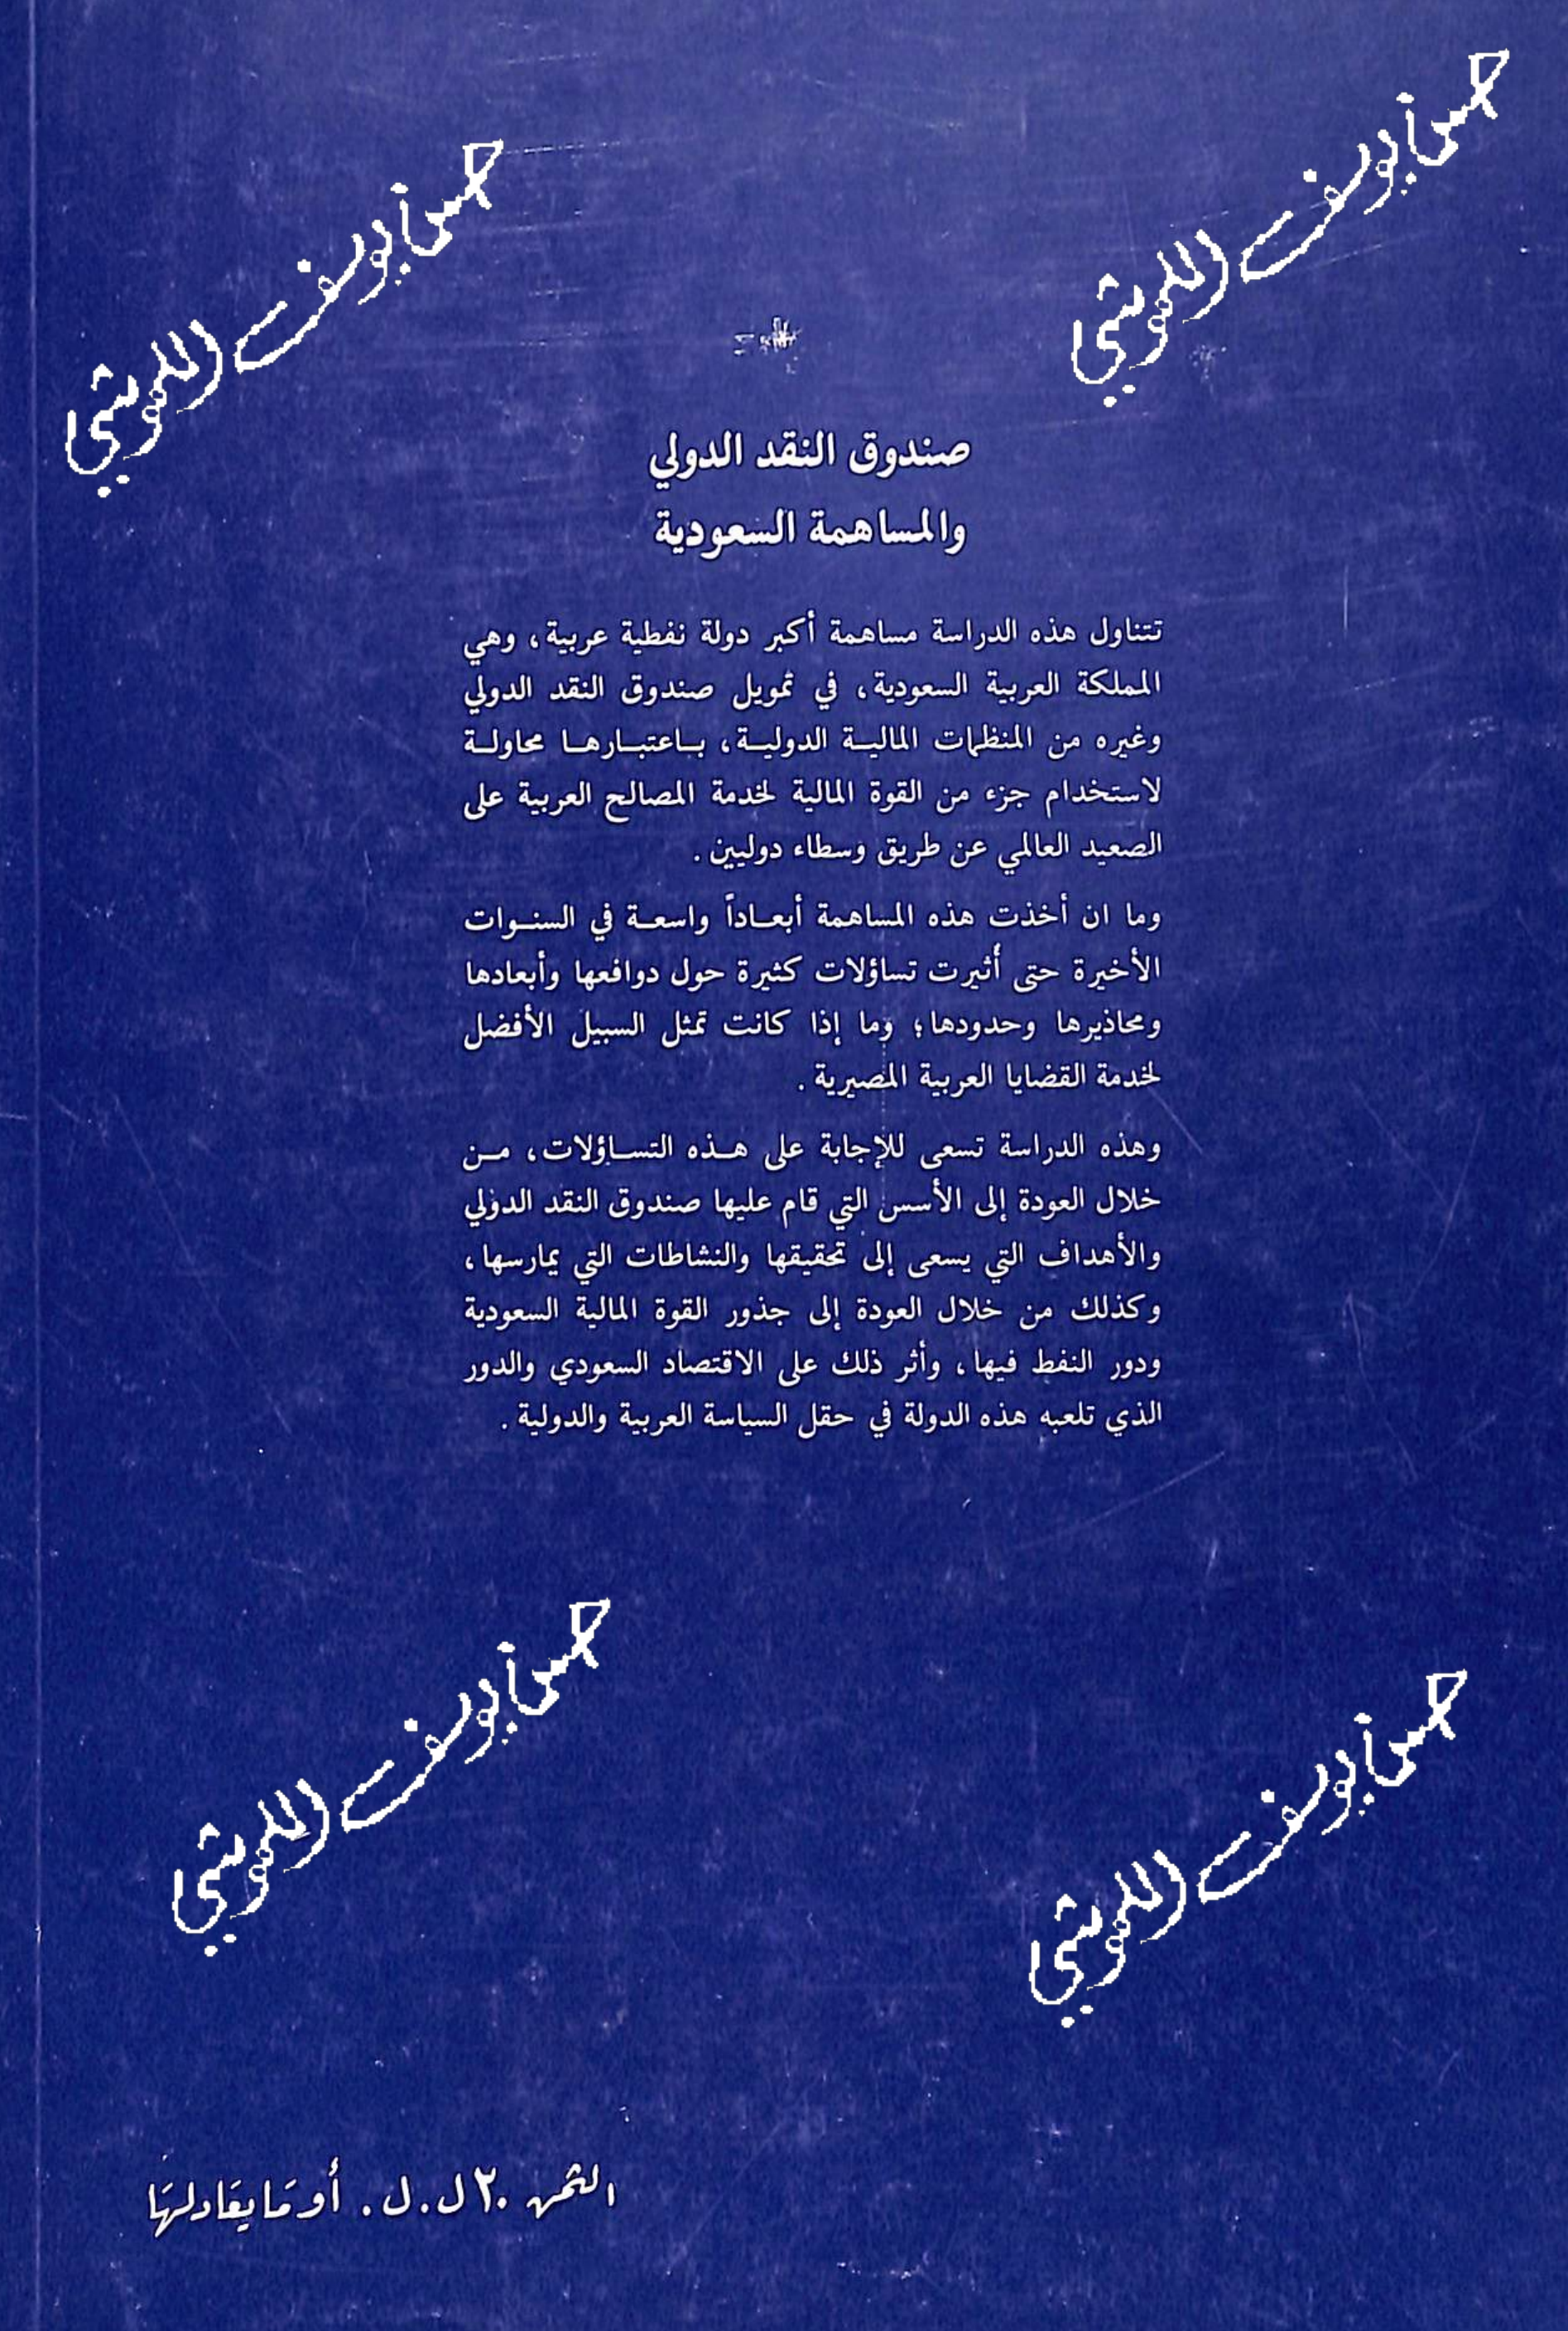 حسن يوسف
حسن يوسف
صندوق النقد الدولي
والمساهمة السعودية
تتناول هذه الدراسة مساهمة أكبر دولة نفطية عربية، وهي
المملكة العربية السعودية، في تمويل صندوق النقد الدولي
وغيره من المنظمات المالية الدولية، باعتبارها محاولة
لاستخدام جزء من القوة المالية لخدمة المصالح العربية على
الصعيد العالمي عن طريق وسطاء دوليين.
وما ان أخذت هذه المساهمة أبعاداً واسعة في السنوات
الأخيرة حتى أُثيرت تساؤلات كثيرة حول دوافعها وأبعادها
ومحاذيرها وحدودها؛ وما إذا كانت تمثل السبيل الأفضل
لخدمة القضايا العربية المصيرية.
وهذه الدراسة تسعى للإجابة على هذه التساؤلات، من
خلال العودة إلى الأسس التي قام عليها صندوق النقد الدولي
والأهداف التي يسعى إلى تحقيقها والنشاطات التي يمارسها،
وكذلك من خلال العودة إلى جذور القوة المالية السعودية
ودور النفط فيها، وأثر ذلك على الاقتصاد السعودي والدور
الذي تلعبه هذه الدولة في حقل السياسة العربية والدولية.
حسن يوسف
حسن يوسف
الثمن ٢٠ ل.ل. أو مَا يعَادلهَا